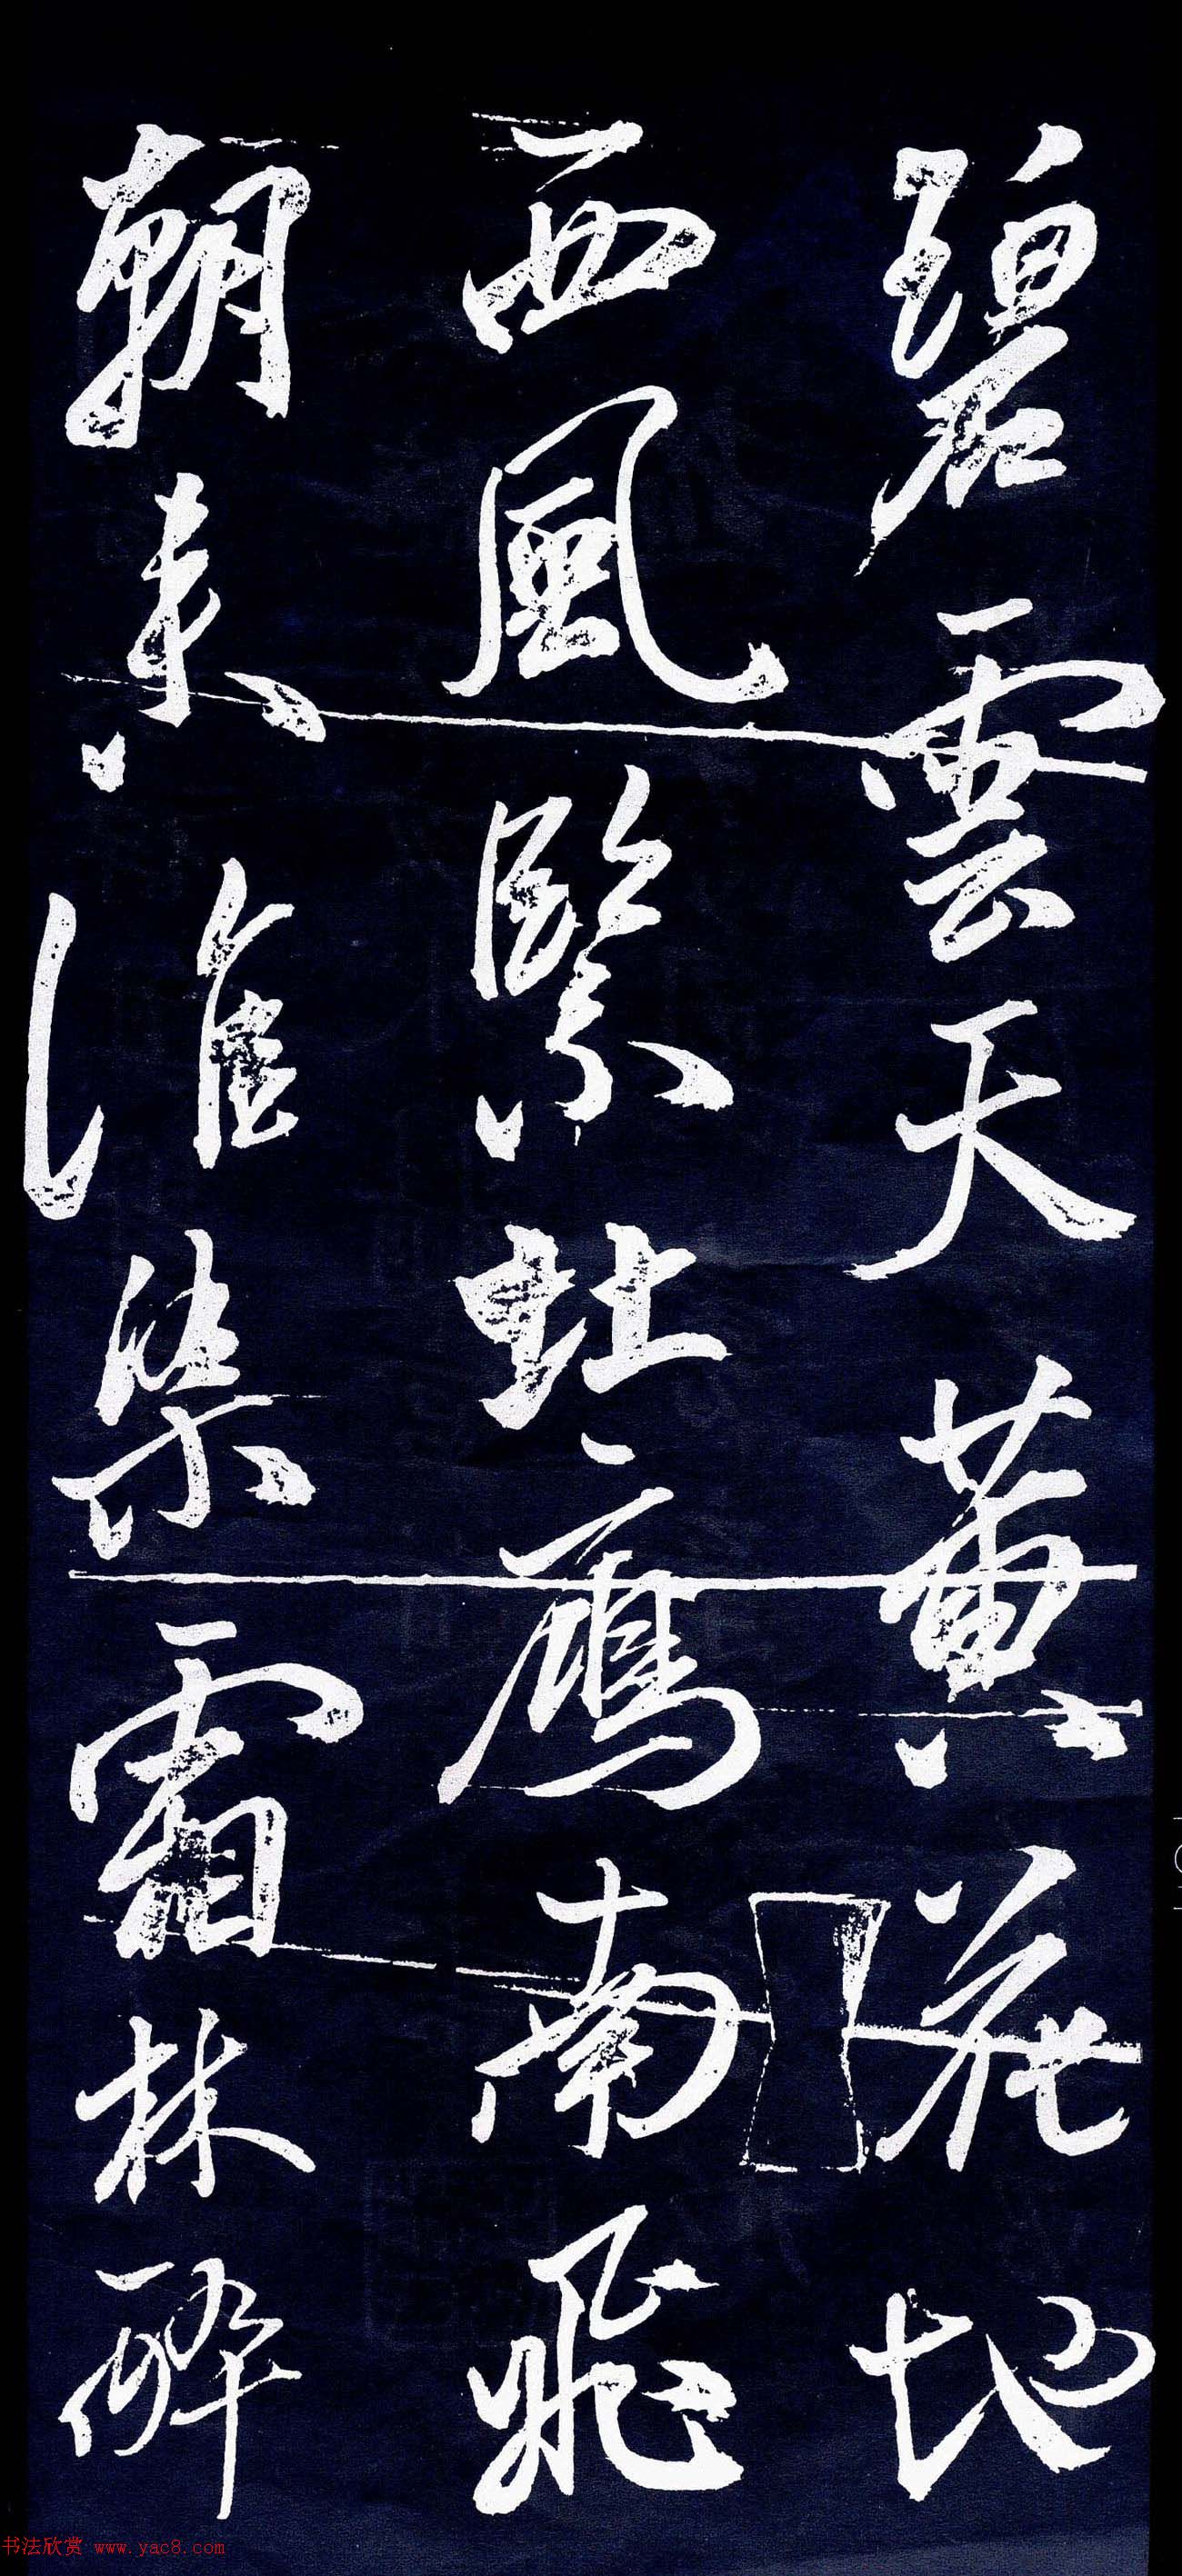 碧雲天黃花地
西風緊北鴈南飛
朝来誰染霜林醉
书法欣赏 www.yac8.com